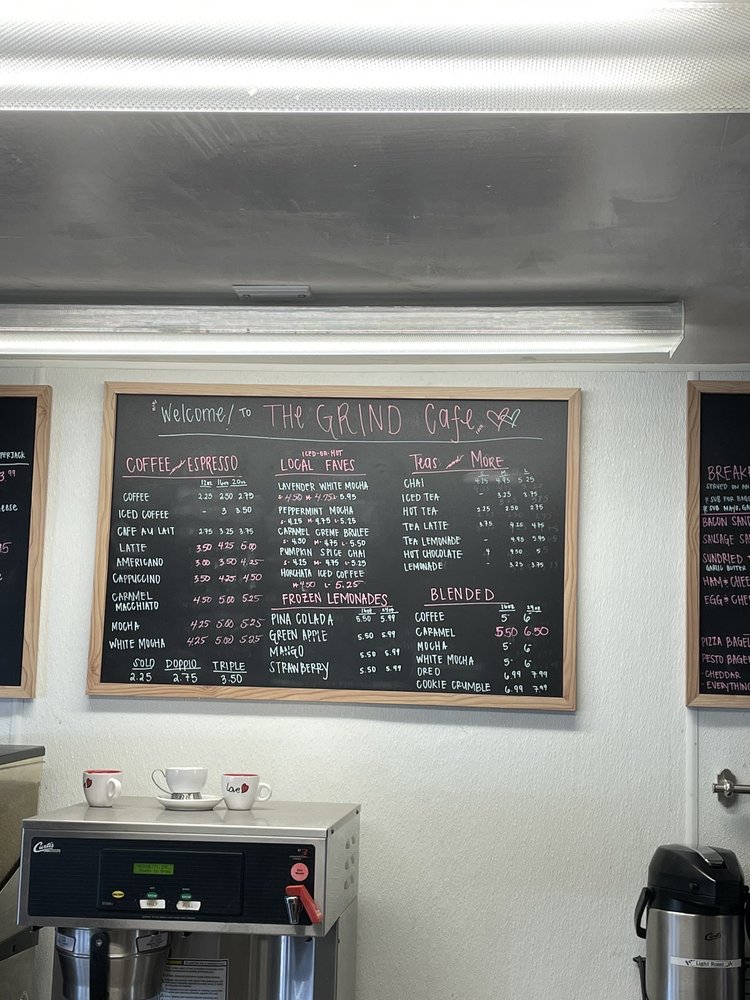 Welcome! To THE GRIND Cafe
COFFEE and ESPRESSO
12oz 16oz 20oz
COFFEE 2.25 2.50 2.75
ICED COFFEE - 3 3.50
CAFE AU LAIT 2.75 3.25 3.75
LATTE 3.50 4.25 5.00
AMERICANO 3.00 3.50 4.25
CAPPUCCINO 3.50 4.25 4.50
CARAMEL
MACCHIATO 4.50 5.00 5.25
MOCHA 4.25 5.00 5.25
WHITE MOCHA 4.25 5.00 5.25
SOLO DOPPIO TRIPLE
2.25 2.75 3.50
ICED-OR-HOT
LOCAL FAVES
LAVENDER WHITE MOCHA
S-4.50 M-4.75 L-5.95
PEPPERMINT MOCHA
S-4.25 M-4.75 L-5.25
CARAMEL CREME BRULEE
S-4.50 M-4.75 L-5.50
PUMPKIN SPICE CHAI
S-4.25 M-4.75 L-5.25
HORCHATA ICED COFFEE
M-4.50 L-5.25
FROZEN LEMONADES
16oz 24oz
PINA COLADA 5.50 5.99
GREEN APPLE 5.50 5.99
MANGO 5.50 5.99
STRAWBERRY 5.50 5.99
Teas and More
S M L
CHAI 4.25 4.95 5.25
ICED TEA - 3.25 3.75
HOT TEA 2.25 2.50 2.75
TEA LATTE 3.75 4.25 4.75
TEA LEMONADE - 4.95 5.95
HOT CHOCOLATE 4 4.50 5
LEMONADE - 3.25 3.75
BLENDED
16oz 24oz
COFFEE 5 6
CARAMEL 5.50 6.50
MOCHA 5 6
WHITE MOCHA 5 6
OREO 6.99 7.99
COOKIE CRUMBLE 6.99 7.99
PERJACK
3.99
BREAK
SERVED ON AN
BACON SAND
SAUSAGE SA
SUNDRIED
GARLIC BUTTER
HAM & CHEE
EGG & CHEE
PIZZA BAGEL
PESTO BAGEL
-CHEDDAR
-EVERYTHING
Love
Curtis
Ready to Brew
HALF
FULL
Curtis
Light Roast